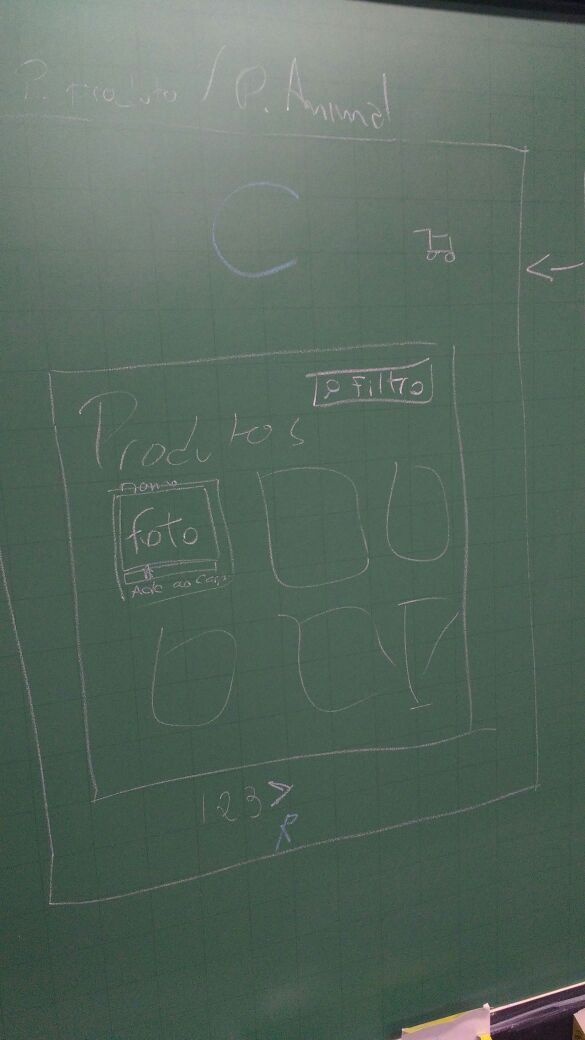 P. Produto / P. Animal
C
Filtro
Produtos
nome
foto
Add ao Carr
1 2 3 >